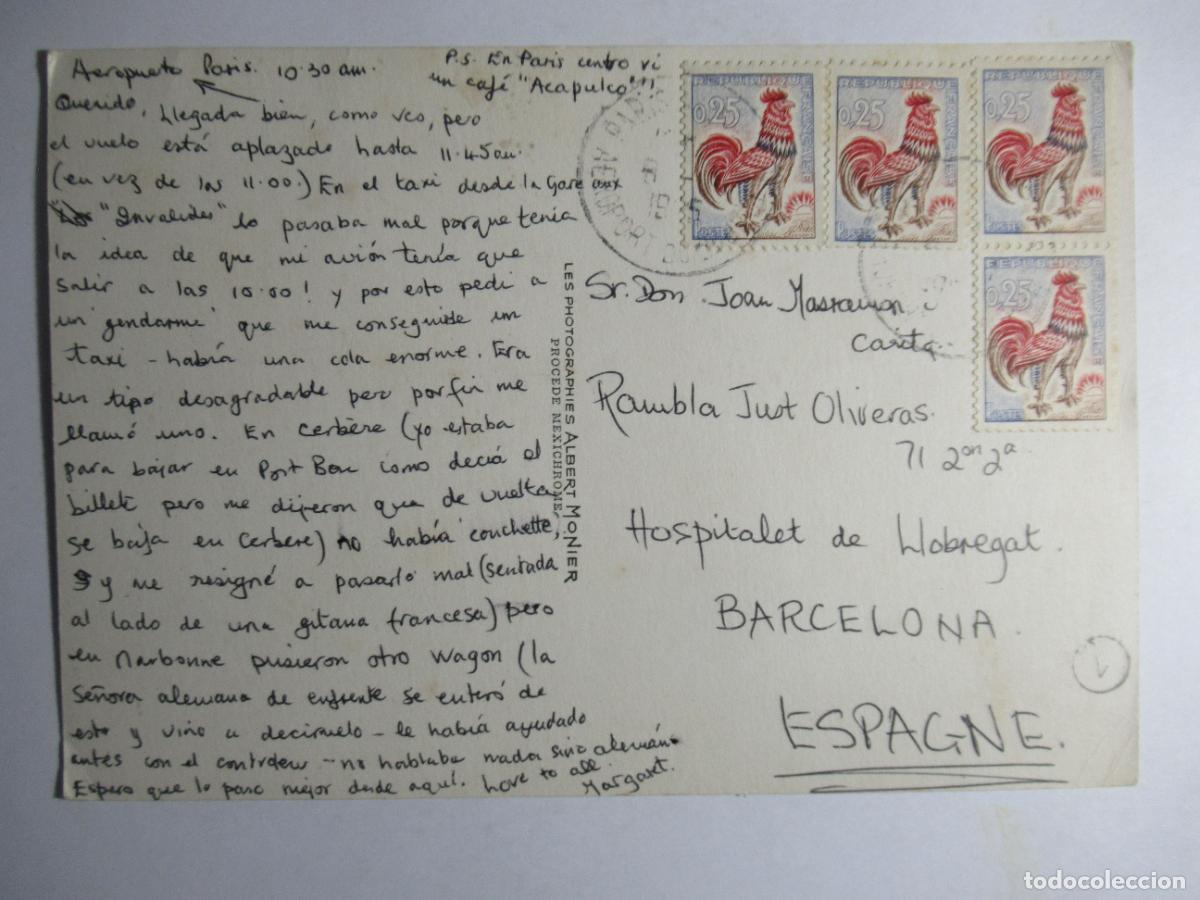 Aeropuerto Paris. 10.30 am.
P.S. En Paris centro vi
un café "Acapulco"!!
Querido, Llegada bien, como ves, pero
el vuelo está aplazado hasta 11.45am.
(en vez de las 11.00.) En el taxi desde la Gare aux
"Invalides" lo pasaba mal porque tenía
la idea de que mi avión tenía que
salir a las 10.00! y por esto pedí a
un 'gendarme' que me consiguiese un
taxi - había una cola enorme. Era
un tipo desagradable pero por fin me
llamó uno. En Cerbère (yo estaba
para bajar en Port Bou como decía el
billete pero me dijeron que de vuelta
se baja en Cerbère) no había 'couchette',
y me resigné a pasarlo mal (sentada
al lado de una gitana francesa) pero
en Narbonne pusieron otro wagon (la
señora alemana de enfrente se enteró de
esto y vino a decírmelo - le había ayudado
antes con el - no hablaba nada sino alemán.
Espero que lo pase mejor desde aquí. Love to all.
Margaret.
LES PHOTOGRAPHIES ALBERT MONIER
PROCEDE MEXICHROME
REPUBLIQUE FRANÇAISE
0,25
POSTES
REPUBLIQUE FRANÇAISE
0,25
POSTES
REPUBLIQUE FRANÇAISE
0,25
POSTES
REPUBLIQUE FRANÇAISE
0,25
POSTES
Sr. Don Joan Masramon i
Carita
Rambla Just Oliveras.
71 2on 2a
Hospitalet de Llobregat.
BARCELONA.
ESPAGNE.
1
todocoleccion